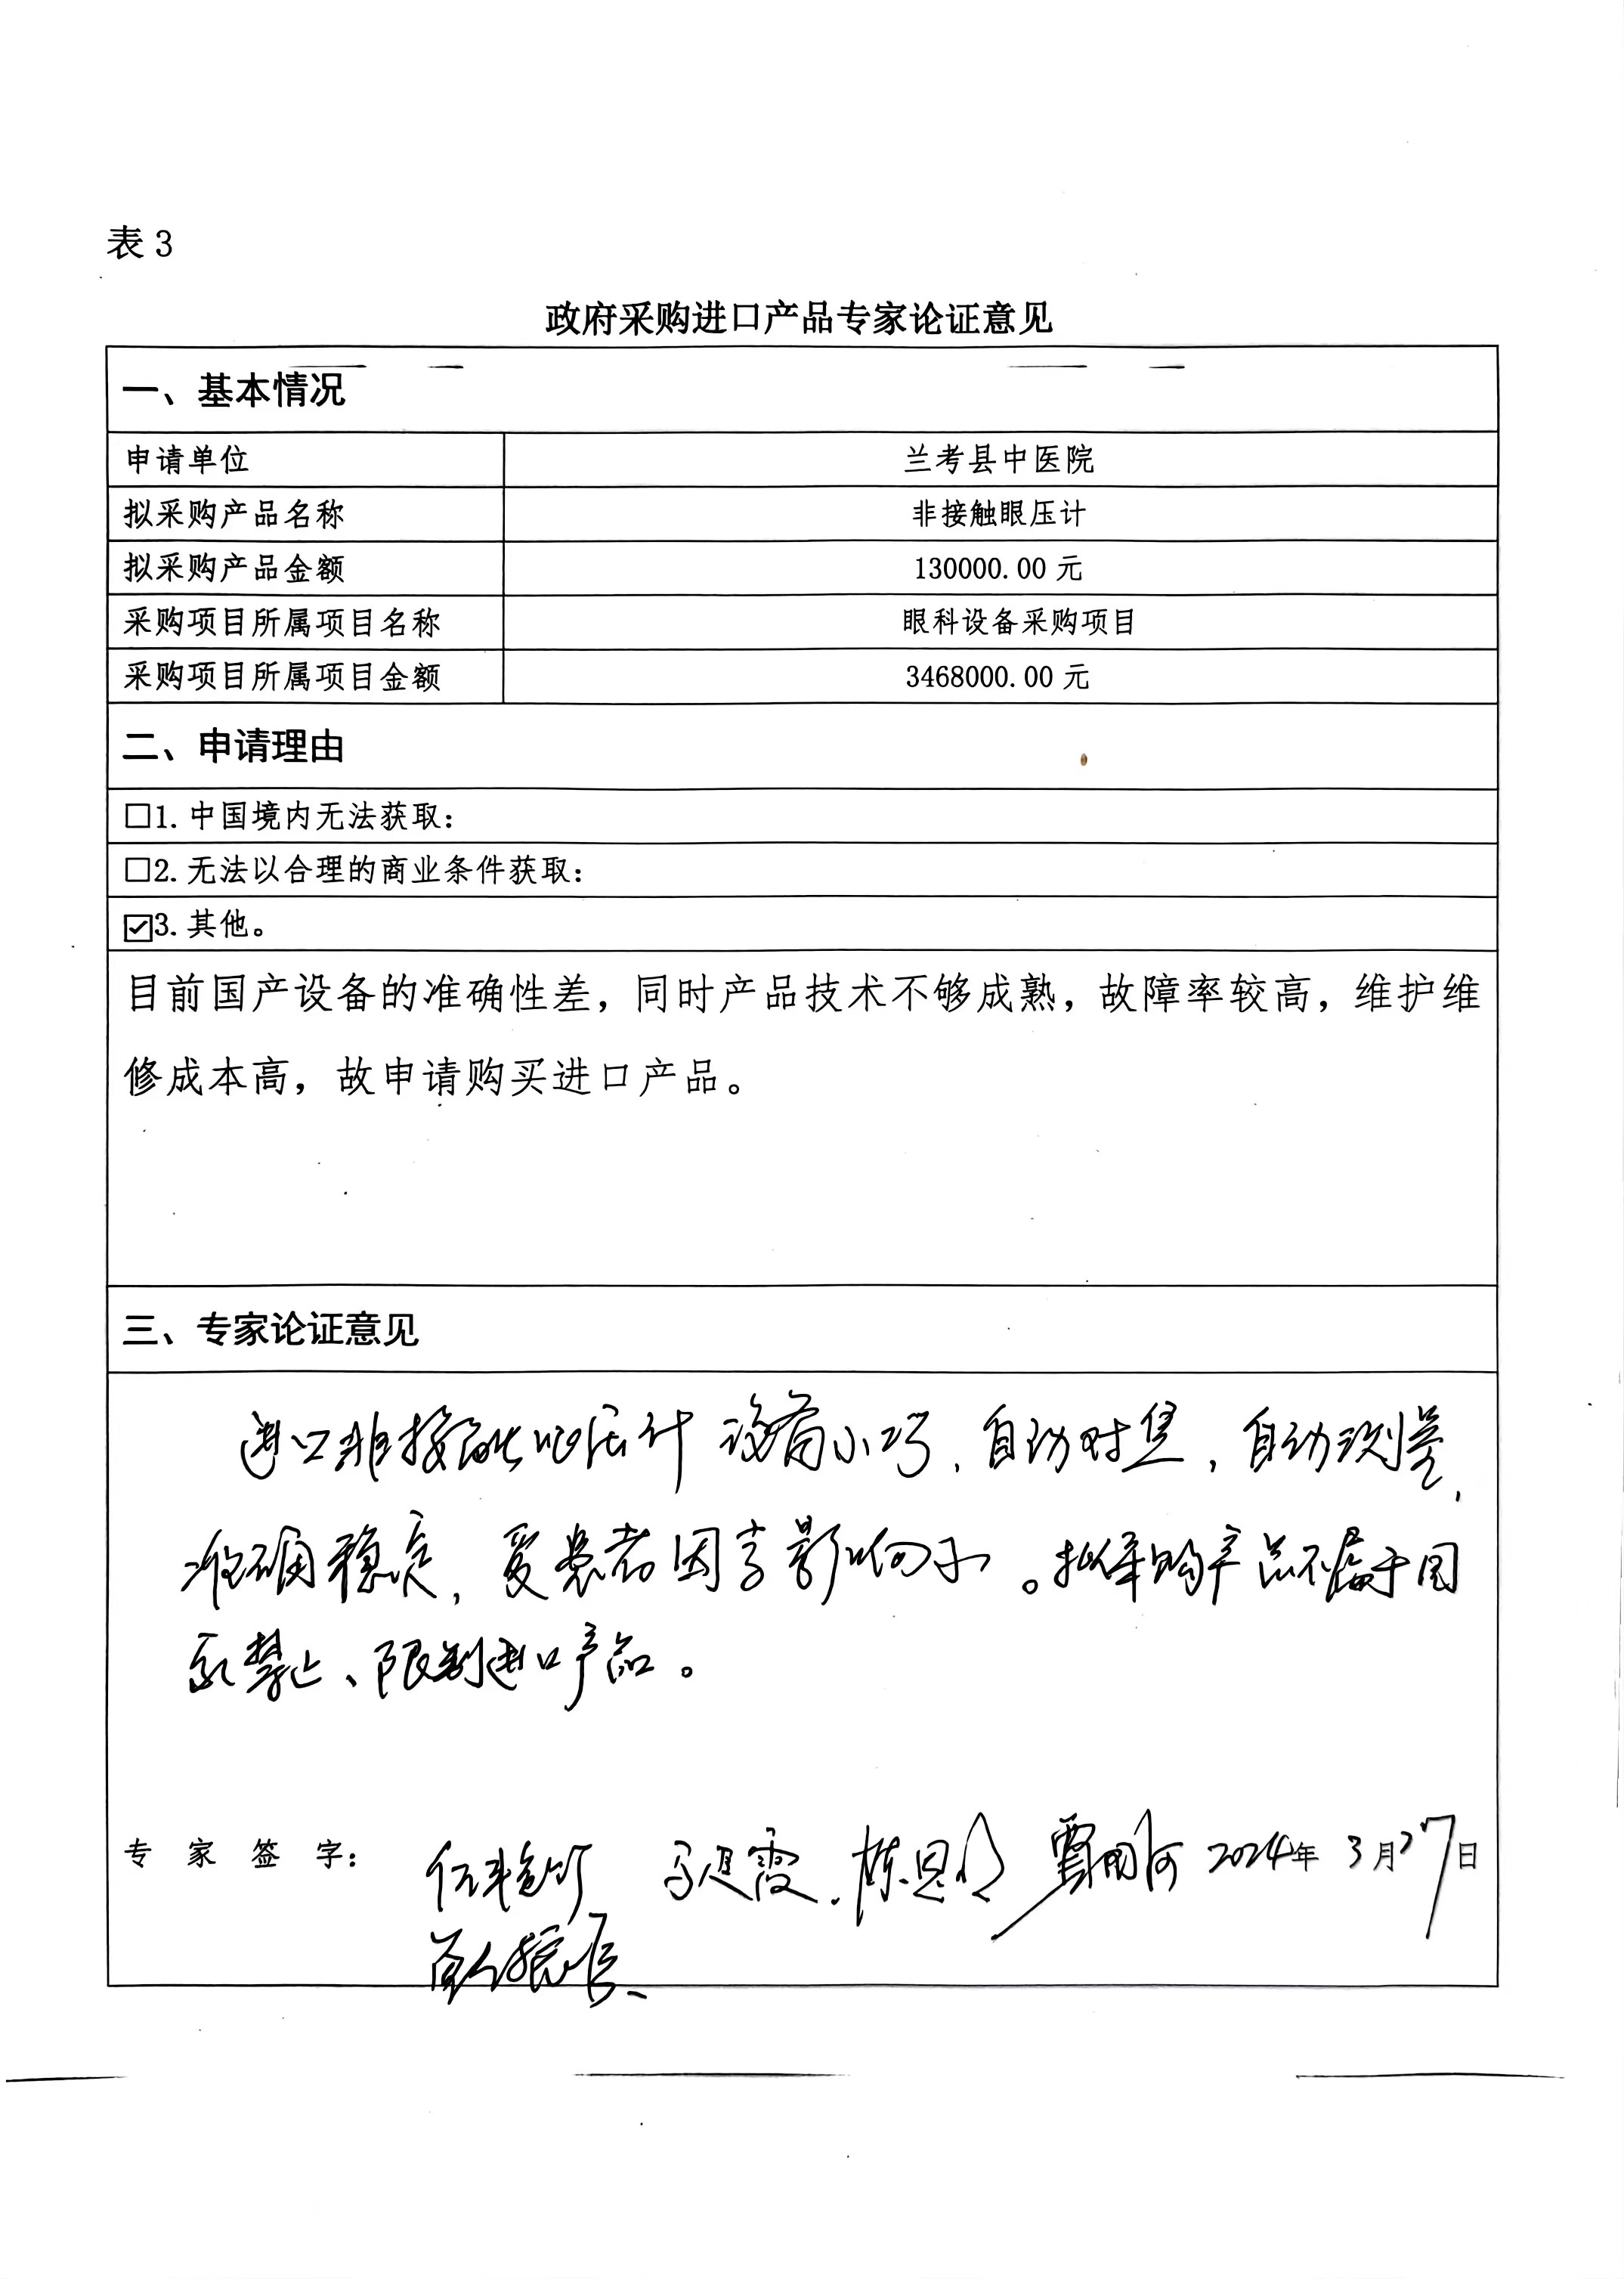 表 3
政府采购进口产品专家论证意见
一、基本情况
申请单位 兰考县中医院
拟采购产品名称 非接触眼压计
拟采购产品金额 130000.00 元
采购项目所属项目名称 眼科设备采购项目
采购项目所属项目金额 3468000.00 元
二、申请理由
□1. 中国境内无法获取：
□2. 无法以合理的商业条件获取：
☑3. 其他。
目前国产设备的准确性差，同时产品技术不够成熟，故障率较高，维护维
修成本高，故申请购买进口产品。
三、专家论证意见
进口非接触眼压计设备小巧，自动对焦，自动测量，
准确稳定，受患者因素影响小。拟采购产品不属于国
家禁止、限制进口产品。
专 家 签 字： 2024年 3月27日